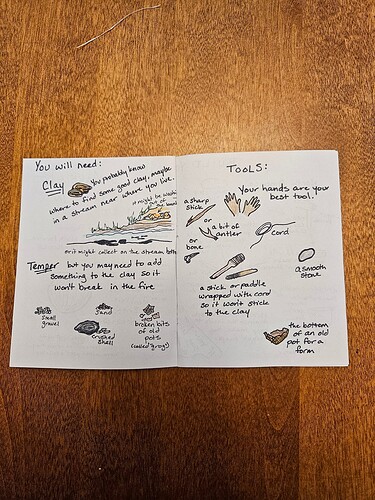 You will need:
Clay
You probably know
where to find some good clay, maybe
in a stream near where you live.
it might be washing
out of
the bank
or it might collect on the stream bottom
Temper but you may need to add
something to the clay so it
won't break in the fire
small
gravel
sand
crushed
shell
broken bits
of old
pots
(called grog)
TOOLS:
Your hands are your
best tool.
a sharp
stick
or
a bit of
antler
or
bone
cord
a smooth
stone
a stick or paddle
wrapped with cord
so it won't stick
to the clay
the bottom
of an old
pot for a
form